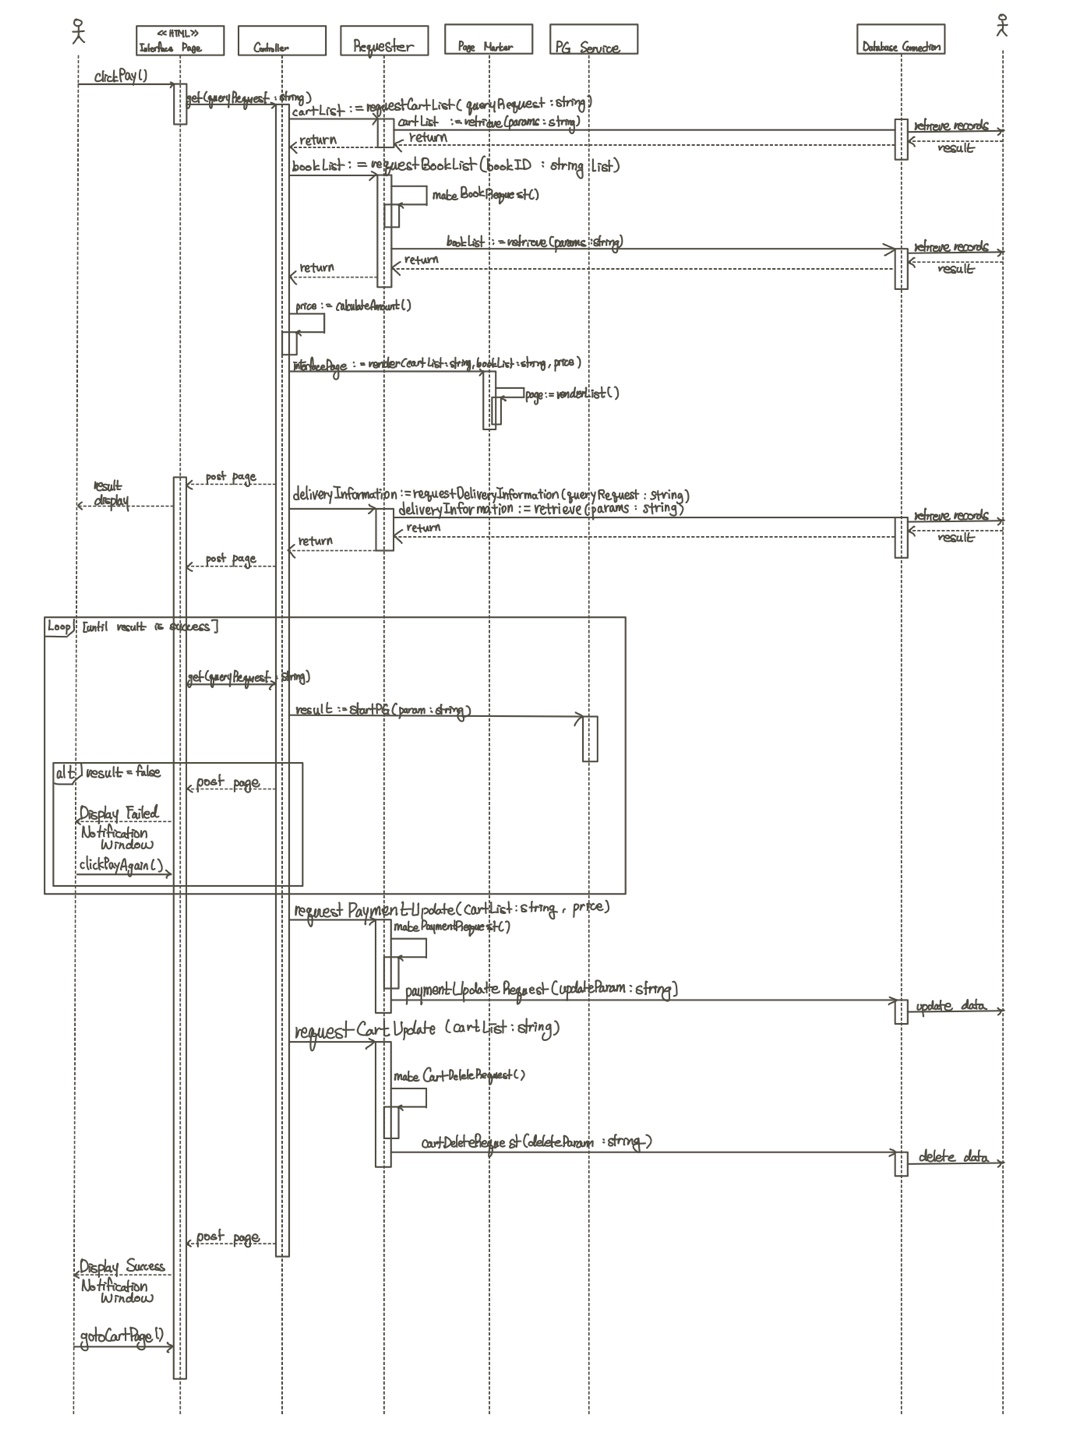 <<HTML>>
Interface Page
Controller
Requester
Page Marker
PG Service
Database Connection
clickPay()
get(queryRequest : string)
cartList := requestCartList( queryRequest : string)
cartList := retrieve(params : string)
retrieve records
return
return
result
bookList := requestBookList(bookID : string list)
makeBookRequest()
bookList := retrieve(params : string)
retrieve records
return
return
result
price := calculateAmount()
interfacePage := render(cartList:string, bookList:string, price)
page := renderList()
post page
result
display
deliveryInformation := requestDeliveryInformation(queryRequest : string)
deliveryInformation := retrieve(params : string)
retrieve records
return
return
result
post page
Loop
[until result is success]
get(queryRequest : string)
result := startPG(param : string)
alt
result = false
post page
Display Failed
Notification
Window
clickPayAgain()
requestPaymentUpdate(cartList:string, price)
makePaymentRequest()
paymentUpdateRequest(updateParam : string)
update data
requestCartUpdate (cartList : string)
makeCartDeleteRequest()
cartDeleteRequest(deleteParam : string)
delete data
post page
Display Success
Notification
Window
gotoCartPage()